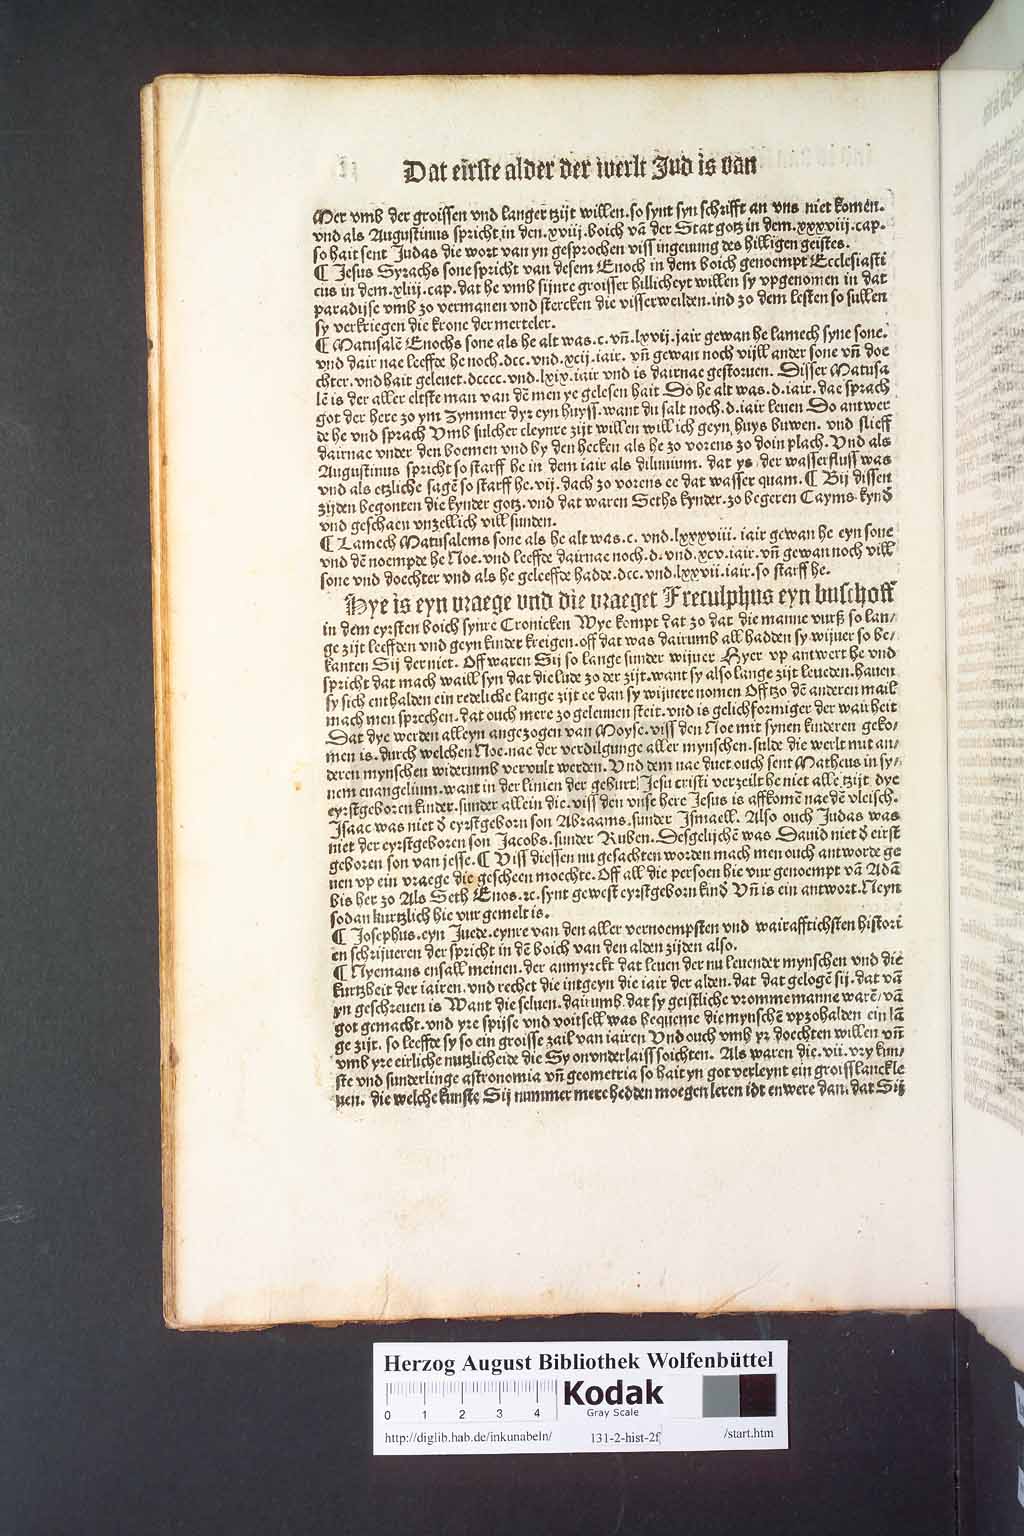 Dat eirste alder der werlt Ind is van
Mer vmb der groissen vnd langer tzijt willen. so synt syn schrifft an vns niet komen.
vnd als Augustinus spricht in den. xviij. boich vā der Stat gotz in dem. xxxviij. cap.
so hait sent Judas die wort van yn gesprochen viss ingeuung des hilligen geistes.
¶ Jesus Syrachs sone spricht van desem Enoch in dem boich genoempt Ecclesiasti
cus in dem. xliij. cap. dat he vmb sijnre groisser hillicheyt willen sy vpgenomen in dat
paradijse vmb zo vermanen vnd stercken die visserweilden. ind zo dem lesten so sullen
sy verkriegen die krone der merteler.
¶ Matusalē Enochs sone als he alt was. c. vñ. lxvij. jair gewan he lamech syne sone.
vnd dair nae leeffde he noch. dcc. vnd. xcij. iair. vñ gewan noch vijll ander sone vñ doe
chter. vnd hait geleuet. dcccc. vnd. lxix. iair vnd is dairnae gestoruen. Disser Matusa
lē is der aller eltste man van dē men ye gelesen hait. Do he alt was. d. iair. dae sprach
got der here zo ym Zymmer dyr eyn huyss. want du salt noch. d. iair leuen Do antwer
de he vnd sprach Vmb sulcher cleynre zijt willen will ich geyn huys buwen. vnd slieff
dairnae vnder den boemen vnd by den hecken als he zo vorens zo doin plach. Vnd als
Augustinus spricht so starff he in dem iair als diluuium. dat ys der wasserfluss was
vnd als etzliche sagē so starff he. vij. dach zo vorens ee dat wasser quam. ¶ Bij dissen
zijden begonten die kynder gotz. vnd dat waren Seths kynder. zo begeren Cayms kynđ
vnd geschaen vnzellich vill sunden.
¶ Lamech Matusalems sone als he alt was. c. vnd. lxxxviii. iair gewan he eyn sone
vnd dē noempde he Noe. vnd leeffde dairnae noch. d. vnd. xcv. iair. vñ gewan noch vill
sone vnd doechter vnd als he geleeffde hadde. dcc. vnd. lxxvii. iair. so starff he.
Hye is eyn vraege vnd die vraeget Freculphus eyn buschoff
in dem eyrsten boich synre Cronicken Wye kompt dat zo dat die manne vurß so lan/
ge zijt leeffden vnd geyn kinder kreigen. off dat was dairumb all hadden sy wijuer so be/
kanten Sij der niet. Off waren Sij so lange sunder wijuer Hyer vp antwert he vnd
spricht dat mach waill syn dat die lude zo der zijt. want sy also lange zijt leueden. hauen
sy sich enthalden ein redeliche lange zijt ee dan sy wijuere nomen Off tzo dē anderen mail
mach men sprechen. dat ouch mere zo geleuuen steit. vnd is gelichformiger der wairheit
Dat dye werden alleyn angezogen van Moyse. viss den Noe mit synen kinderen geko/
men is. durch welchen Noe. nae der verdilgunge aller mynschen. sulde die werlt mit an/
deren mynschen widerumb vervult werden. Vnd dem nae duet ouch sent Matheus in sy/
nem euangelium. want in der linien der geburt Jesu cristi verzeilt he niet alle tzijt dye
eyrstgeboren kinder. sunder allein die. viss den vnse here Jesus is affkomē nae dē vleisch.
Isaac was niet đ eyrstgeborn son Abraams. sunder Ismaell. Also ouch Judas was
niet der eyrstgeboren son Jacobs. sunder Ruben. Desgelijchē was Dauid niet đ eirst
geboren son van jesse. ¶ Viss diessen nu gesachten worden mach men ouch antworde ge
uen vp ein vraege die gescheen moechte. Off all die persoen hie vur genoempt vā Adā
bis her zo Als Seth Enos. ꝛc. synt gewest eyrstgeborn kinđ Vñ is ein antwort. Neyn
so dan kurtzlich hie vur gemelt is.
¶ Josephus. eyn Juede. eynre van den aller vernoempsten vnd wairafftichsten histori
en schrijueren der spricht in dē boich van den alden zijden also.
¶ Nyemans ensall meinen. der anmyrckt dat leuen der nu leuender mynschen vnd die
kurtzheit der iairen. vnd rechet die intgeyn die iair der alden. dat dat gelogē sij. dat vā
yn geschreuen is Want die seluen. dairumb. dat sy geistliche vromme manne warē/ vā
got gemacht. vnd yre spijse vnd voitsell was bequeme die mynschē vpzohalden ein lā
ge zijt. so leeffde sy so ein groisse zail van iairen Vnd ouch vmb yr doechten willen vñ
vmb yre eirliche nutzlicheide die Sy on vnderlaiss soichten. Als waren die. vii. vry kun/
ste vnd sunderlinge astronomia vñ geometria so hait yn got verleynt ein groiss lanck le
uen. die welche kunste Sij nummer mere hedden moegen leren idt enwere dan. dat Sij
Herzog August Bibliothek Wolfenbüttel
0 1 2 3 4
Kodak
Gray Scale
http://diglib.hab.de/inkunabeln/ 131-2-hist-2f /start.htm